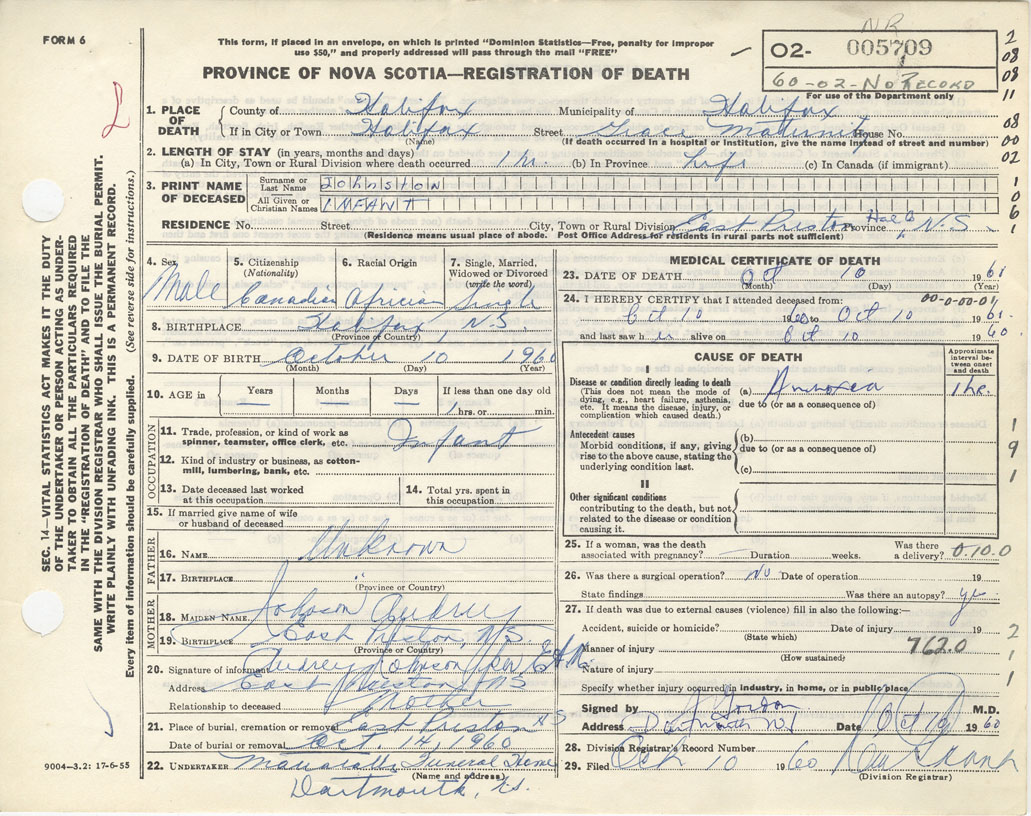 FORM 6
This form, if placed in an envelope, on which is printed "Dominion Statistics—Free, penalty for improper
use $50," and properly addressed will pass through the mail "FREE"
PROVINCE OF NOVA SCOTIA—REGISTRATION OF DEATH
NR
02- 005709
60-02-No RECORD
For use of the Department only
2
08
08
11
08
00
02
1
0
6
1
1
9
1
2
1
1
2
SEC. 14—VITAL STATISTICS ACT MAKES IT THE DUTY
OF THE UNDERTAKER OR PERSON ACTING AS UNDER-
TAKER TO OBTAIN ALL THE PARTICULARS REQUIRED
IN THE "REGISTRATION OF DEATH" AND TO FILE THE
SAME WITH THE DIVISION REGISTRAR WHO SHALL ISSUE THE BURIAL PERMIT.
WRITE PLAINLY WITH UNFADING INK. THIS IS A PERMANENT RECORD.
Every item of information should be carefully supplied. (See reverse side for instructions.)
9004—3.2: 17-6-55
1. PLACE OF DEATH
County of Halifax Municipality of Halifax
If in City or Town Halifax Street Grace Maternity House No.
(Name) (If death occurred in a hospital or institution, give the name instead of street and number)
2. LENGTH OF STAY (in years, months and days)
(a) In City, Town or Rural Division where death occurred 1 hr. (b) In Province Life (c) In Canada (if immigrant)
3. PRINT NAME OF DECEASED
Surname or Last Name JOHNSTON
All Given or Christian Names INFANT
RESIDENCE No. Street City, Town or Rural Division East Preston Province N.S.
(Residence means usual place of abode. Post Office Address for residents in rural parts not sufficient)
4. Sex Male
5. Citizenship (Nationality) Canadian
6. Racial Origin African
7. Single, Married, Widowed or Divorced (write the word) Single
8. BIRTHPLACE Halifax, N.S.
(Province or Country)
9. DATE OF BIRTH October 10 1960
(Month) (Day) (Year)
10. AGE in Years — Months — Days — If less than one day old
1 hrs. or min.
OCCUPATION
11. Trade, profession, or kind of work as spinner, teamster, office clerk, etc. Infant
12. Kind of industry or business, as cotton-mill, lumbering, bank, etc.
13. Date deceased last worked at this occupation
14. Total yrs. spent in this occupation
15. If married give name of wife or husband of deceased
FATHER
16. NAME Unknown
17. BIRTHPLACE "
(Province or Country)
MOTHER
18. MAIDEN NAME Johnson Audrey
19. BIRTHPLACE East Preston, N.S.
(Province or Country)
20. Signature of informant Audrey Johnson per
Address East Preston NS
Relationship to deceased Mother
21. Place of burial, cremation or removal East Preston NS
Date of burial or removal Oct. 14, 1960
22. UNDERTAKER Funeral Home
(Name and address)
Dartmouth, N.S.
MEDICAL CERTIFICATE OF DEATH
23. DATE OF DEATH Oct 10 19
(Month) (Day) (Year)
24. I HEREBY CERTIFY that I attended deceased from: 00-0-00-01
Oct 10 19 to Oct 10 19
and last saw h alive on Oct 10 1960
CAUSE OF DEATH
Approximate interval between onset and death
I
Disease or condition directly leading to death
(This does not mean the mode of dying, e.g., heart failure, asthenia, etc. It means the disease, injury, or complication which caused death.)
(a) 1 hr.
due to (or as a consequence of)
Antecedent causes
Morbid conditions, if any, giving rise to the above cause, stating the underlying condition last.
(b)
due to (or as a consequence of)
(c)
II
Other significant conditions contributing to the death, but not related to the disease or condition causing it.
25. If a woman, was the death associated with pregnancy? Duration weeks. Was there a delivery? 0.10.0
26. Was there a surgical operation? No Date of operation 19
State findings Was there an autopsy?
27. If death was due to external causes (violence) fill in also the following:—
Accident, suicide or homicide? Date of injury 19
(State which)
Manner of injury 762.0
(How sustained)
Nature of injury
Specify whether injury occurred in industry, in home, or in public place
Signed by Gordon M.D.
Address Dartmouth Date Oct 19 1960
28. Division Registrar's Record Number
29. Filed Oct 10 1960
(Division Registrar)